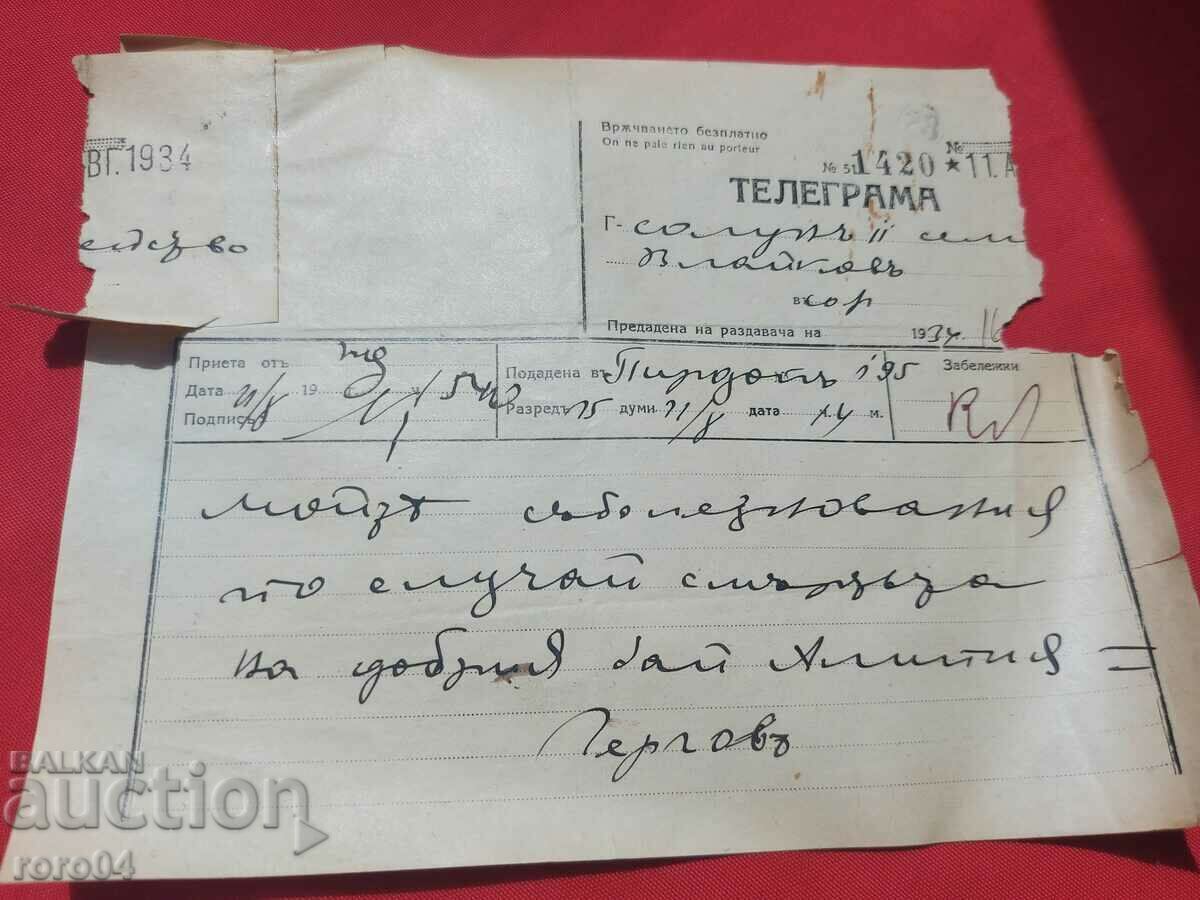 ВГ. 1934
Врѫчването безплатно
On ne paie rien au porteur
№ 51 1420 ★ 11. А
№
ТЕЛЕГРАМА
Г- солунъ 11 сем
Влайковъ
въ
Предадена на раздавача на 1934 16
Приета отъ
Дата 11/8 19
Подписъ
Подадена въ Пирдопъ 195
Разредъ 15 думи 11/8 дата 14 м.
Забележки
мойтѣ съболезнования
по случай смъртьта
на добрия бай Алипия =
Герговъ
BALKAN
auction
roro04